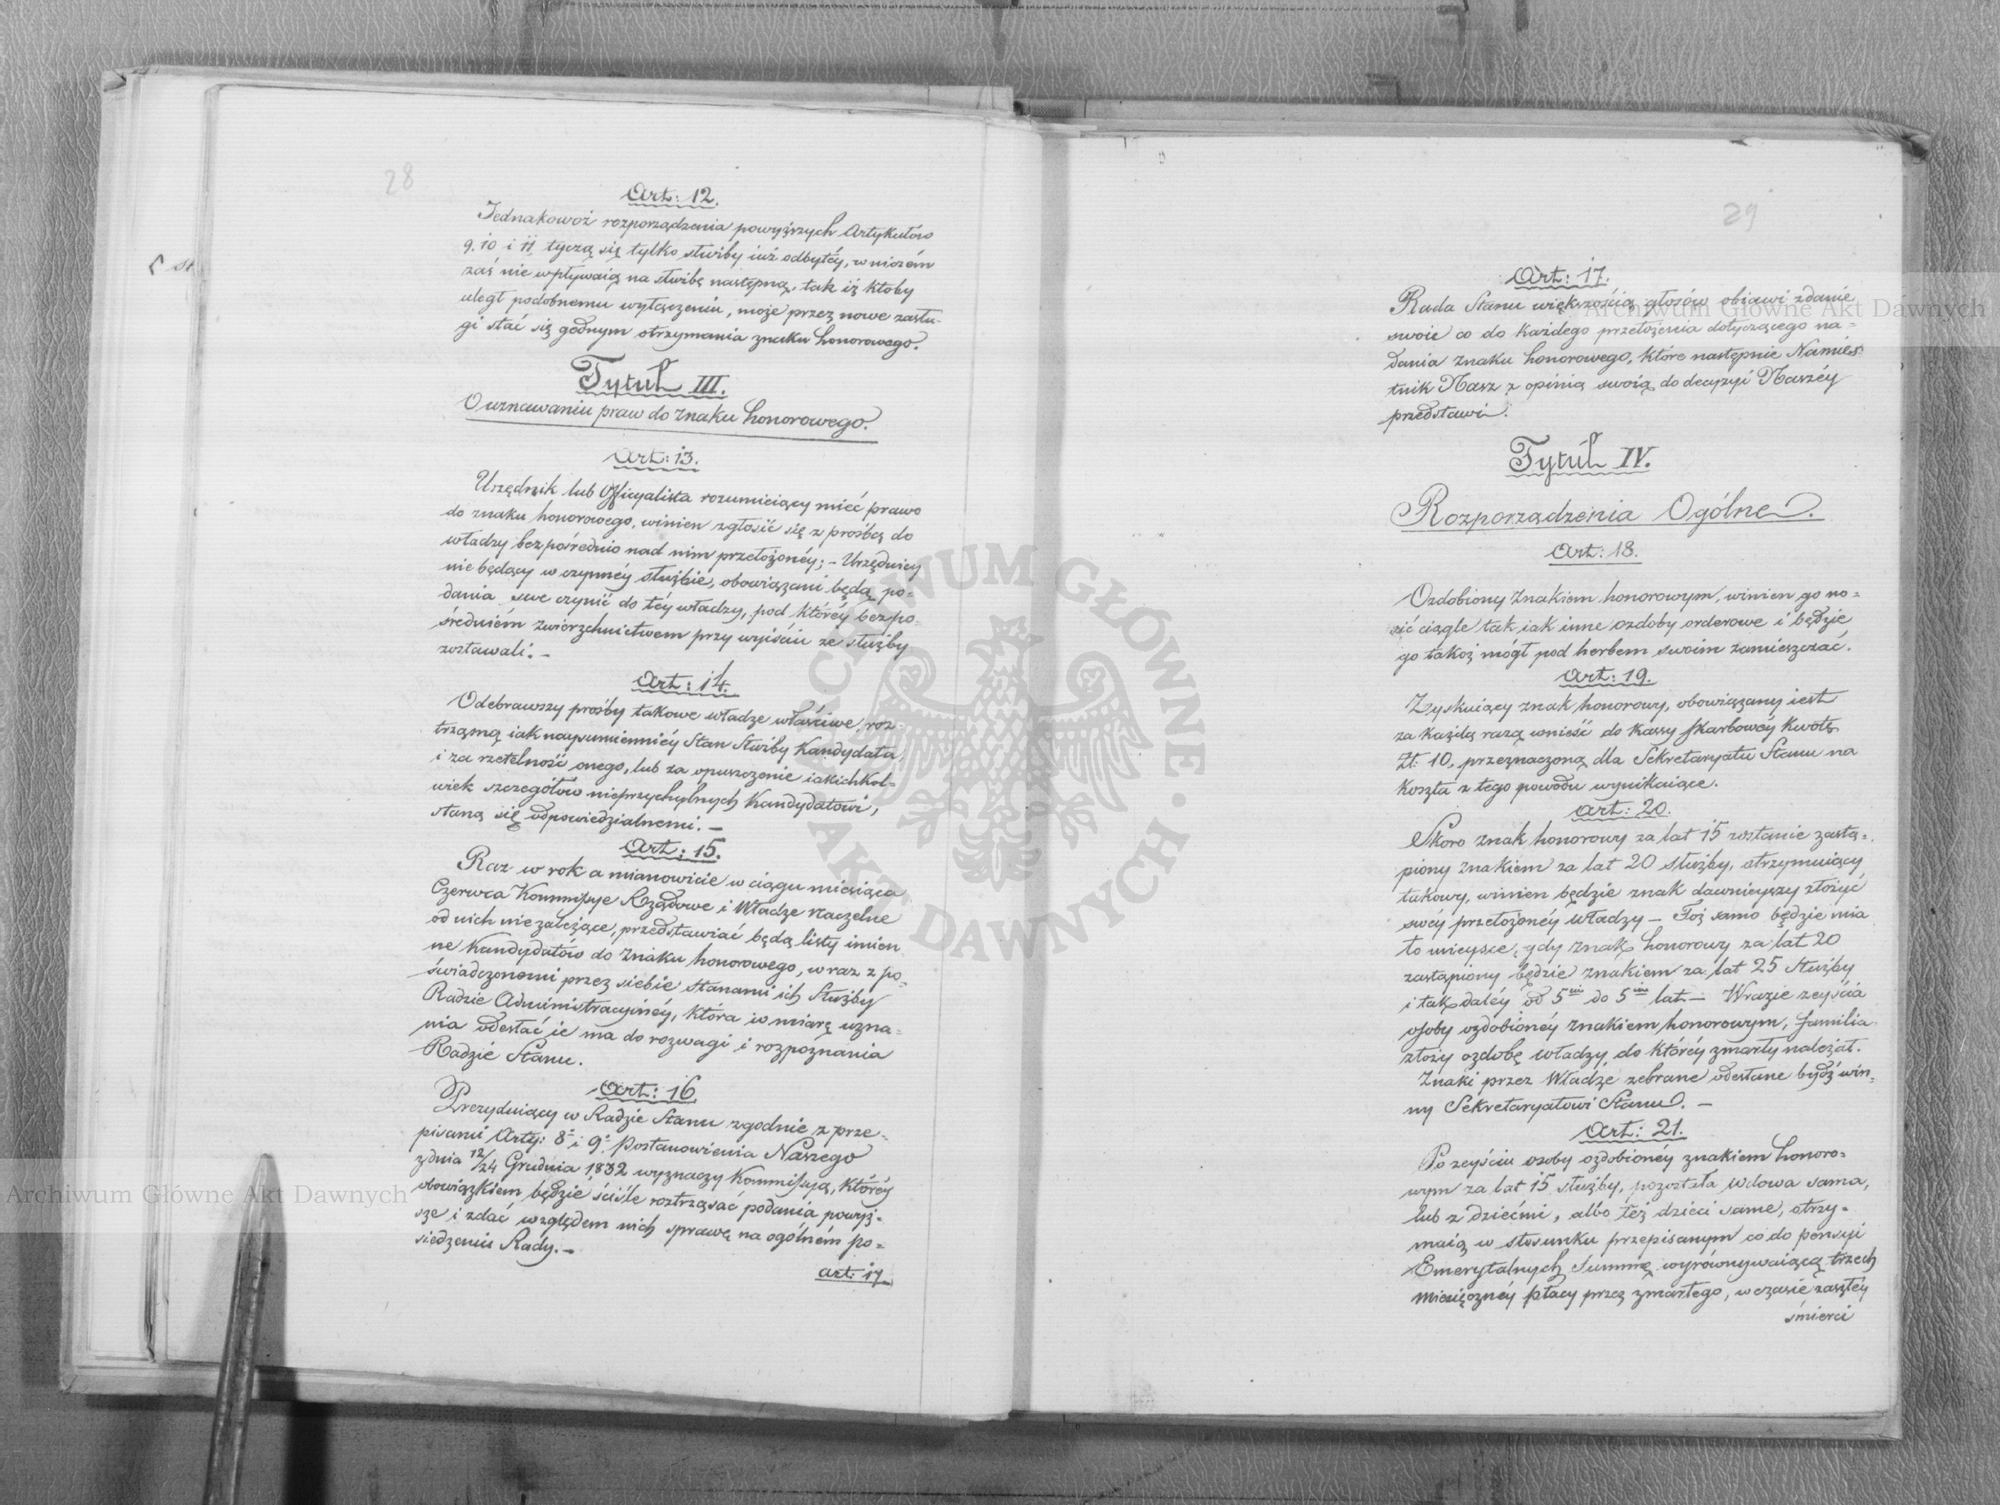 28
Art: 12.
Jednakowoż rozporządzenia powyższych Artykułów
9. 10 i 11 tyczą się tylko służby iuż odbytéy, w niczém
zaś nie wpływaią na służbę następną, tak iż ktoby
uległ podobnemu wyłączeniu, może przez nowe zasłu-
gi stać się godnym otrzymania znaku honorowego.
Tytuł III.
O uznawaniu praw do znaku honorowego.
Art: 13.
Urzędnik lub Officyalista rozumieiący mieć prawo
do znaku honorowego, winien zgłosić się z prośbą do
władzy bezpośrednio nad nim przełożonéy; – Urzędnicy
nie będący w czynnéy służbie, obowiązani będą po-
dania swe czynić do téy władzy, pod któréy bezpo-
średniém zwierzchnictwem przy wyiściu ze służby
zostawali. –
Art: 14.
Odebrawszy prośby takowe władze właściwe, roz-
trząsną iak naysumienniéy Stan Służby Kandydata,
i za rzetelność onego, lub za opuszczenie iakichkol-
wiek szczegółów nieprzychylnych Kandydatowi,
staną się odpowiedzialnemi. –
Art: 15.
Raz w rok a mianowicie w ciągu miesiąca
Czerwca Kommissye Rządowe i Władze naczelne
od nich niezależące, przedstawiać będą listy imien
ne Kandydatów do znaku honorowego, wraz z po-
świadczonemi przez siebie stanami ich Służby
Radzie Administracyinéy, która w miarę uzna-
nia odesłać ie ma do rozwagi i rozpoznania
Radzie Stanu.
Art: 16.
Prezyduiący w Radzie Stanu zgodnie z prze-
pisami Arty: 8º i 9º Postanowienia Naszego
z dnia 12/24 Grudnia 1832 wyznaczy Kommissyą, któréy
obowiązkiem będzie ściśle roztrząsać podania powyż-
sze i zdać względem nich sprawę na ogólném po-
siedzeniu Rady. –
art: 17
29
Art: 17.
Rada Stanu większością głosów obiawi zdanie
swoie co do każdego przełożenia dotyczącego na-
dania znaku honorowego, które następnie Namies
tnik Nasz z opinią swoią do decyzyi Naszéy
przedstawi.
Tytuł IV.
Rozporządzenia Ogólne.
Art: 18.
Ozdobiony znakiem honorowym, winien go no-
sić ciągle tak iak inne ozdoby orderowe i będzie
go takoż mógł pod herbem swoim zamieszczać.
Art: 19.
Zyskuiący znak honorowy, obowiązany iest
za każdą razą wnieść do Kassy Skarbowéy kwotę
Zł: 10, przeznaczoną dla Sekretaryatu Stanu na
koszta z tego powodu wynikaiące.
Art: 20.
Skoro znak honorowy za lat 15 zostanie zastą-
piony znakiem za lat 20 służby, otrzymuiący
takowy, winien będzie znak dawnieyszy złożyć
swéy przełożonéy władzy – Toż samo będzie mia
ło mieysce, gdy znak honorowy za lat 20
zastąpiony będzie znakiem za lat 25 Służby
i tak daléy od 5ciu do 5ciu lat. – W razie zeyścia
osoby ozdobionéy znakiem honorowym, familia
złoży ozdobę władzy, do któréy zmarły należał.
Znaki przez Władze zebrane odesłane bydź win-
ny Sekretaryatowi Stanu. –
Art: 21.
Po zeyściu osoby ozdobionéy znakiem honoro-
wym za lat 15 służby, pozostała wdowa sama,
lub z dziećmi, albo też dzieci same, otrzy-
maią w stosunku przepisanym co do pensyi
Emerytalnych Summę wyrównywaiącą trzech
miesięcznéy płacy przez zmarłego, w czasie zaszłéy
śmierci
Archiwum Główne Akt Dawnych
Archiwum Główne Akt Dawnych
ARCHIWUM GŁÓWNE AKT DAWNYCH